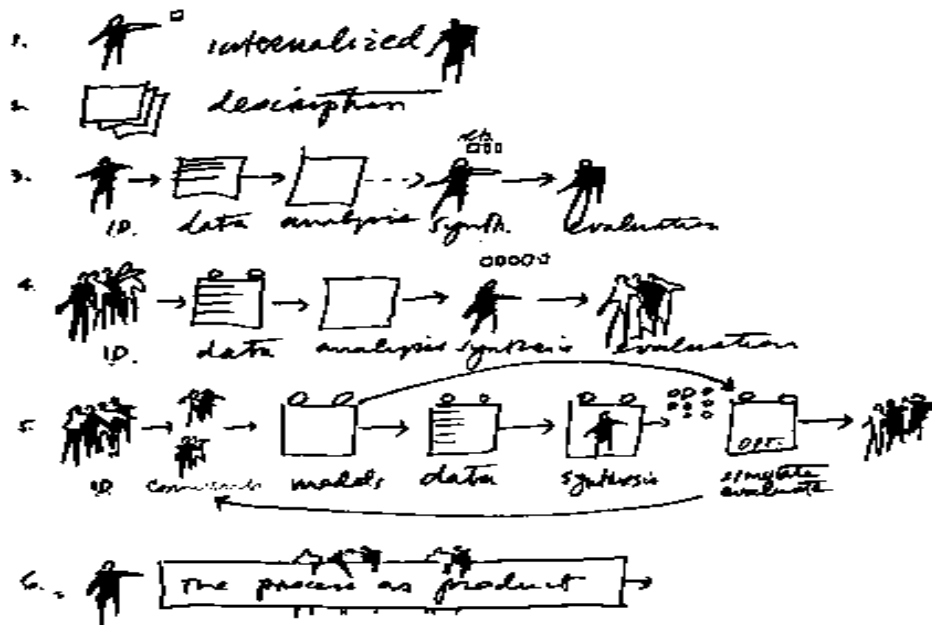 1. internalized
2. description
3.
I.D. data analysis synth. evaluation
4.
I.D. data analysis synthesis evaluation
5.
OPT.
I.D. models data synthesis simulate
evaluate
6. The process as product